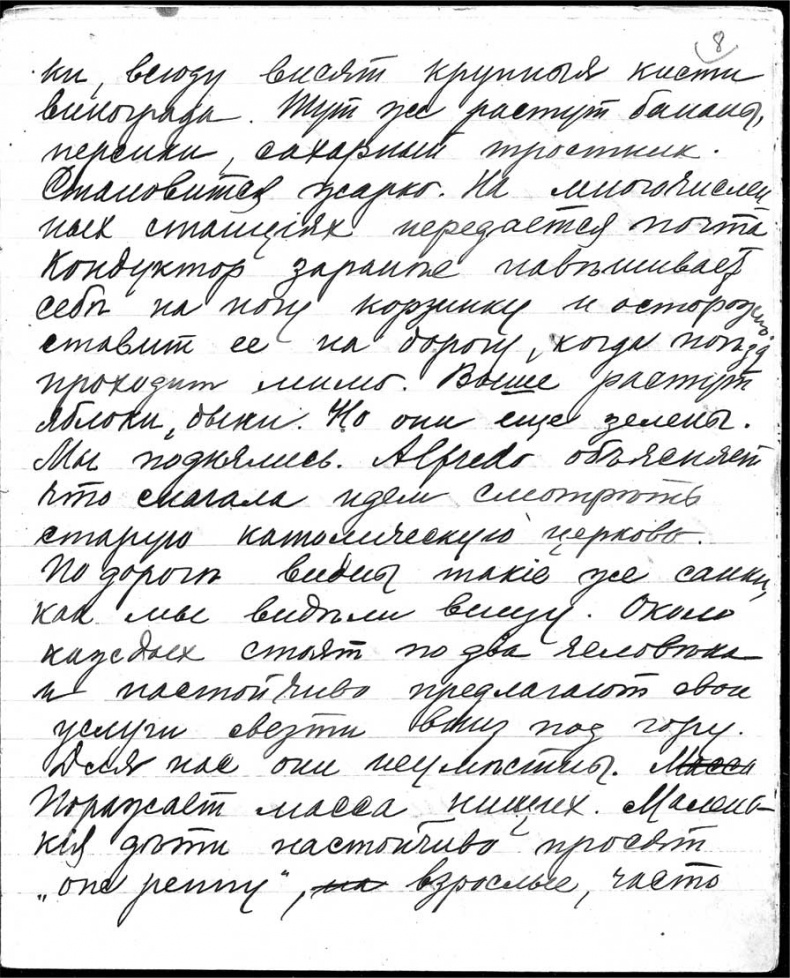 8
ки, всюду висят крупныя кисти
винограда. Тут же растут бананы,
персики, сахарный тростник.
Становится жарко. На многочислен
ных станціях передается почта
Кондуктор заранѣе навѣшивает
себѣ на ногу корзинку и осторожно
ставит ее на дорогу, когда поѣзд
проходит мимо. Выше растут
яблоки, дыни. Но они еще зелены.
Мы поднялись. Alfredo объясняет
что сначала идем смотрѣть
старую католическую церковь.
По дорогѣ видны такіе же санки,
как мы видѣли внизу. Около
каждых стоят по два человѣка
и настойчиво предлагают свои
услуги свезти вниз под гору.
Для нас они неумѣстны. Масса
Поражает масса нищих. Малень-
кія дѣти настойчиво просят
„one penny“, на взрослые, часто